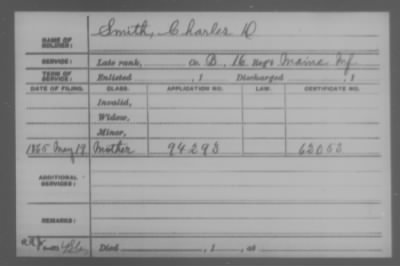 NAME OF SOLDIER: Smith, Charles D
SERVICE: Late rank, Co. B, 16 Reg't Maine Inf
TERM OF SERVICE: Enlisted , 1 Discharged , 1
DATE OF FILING. CLASS. APPLICATION NO. LAW. CERTIFICATE NO.
Invalid,
Widow,
Minor,
1865 May 19 Mother 94293
ADDITIONAL SERVICES:
REMARKS:
Died , 1 , at